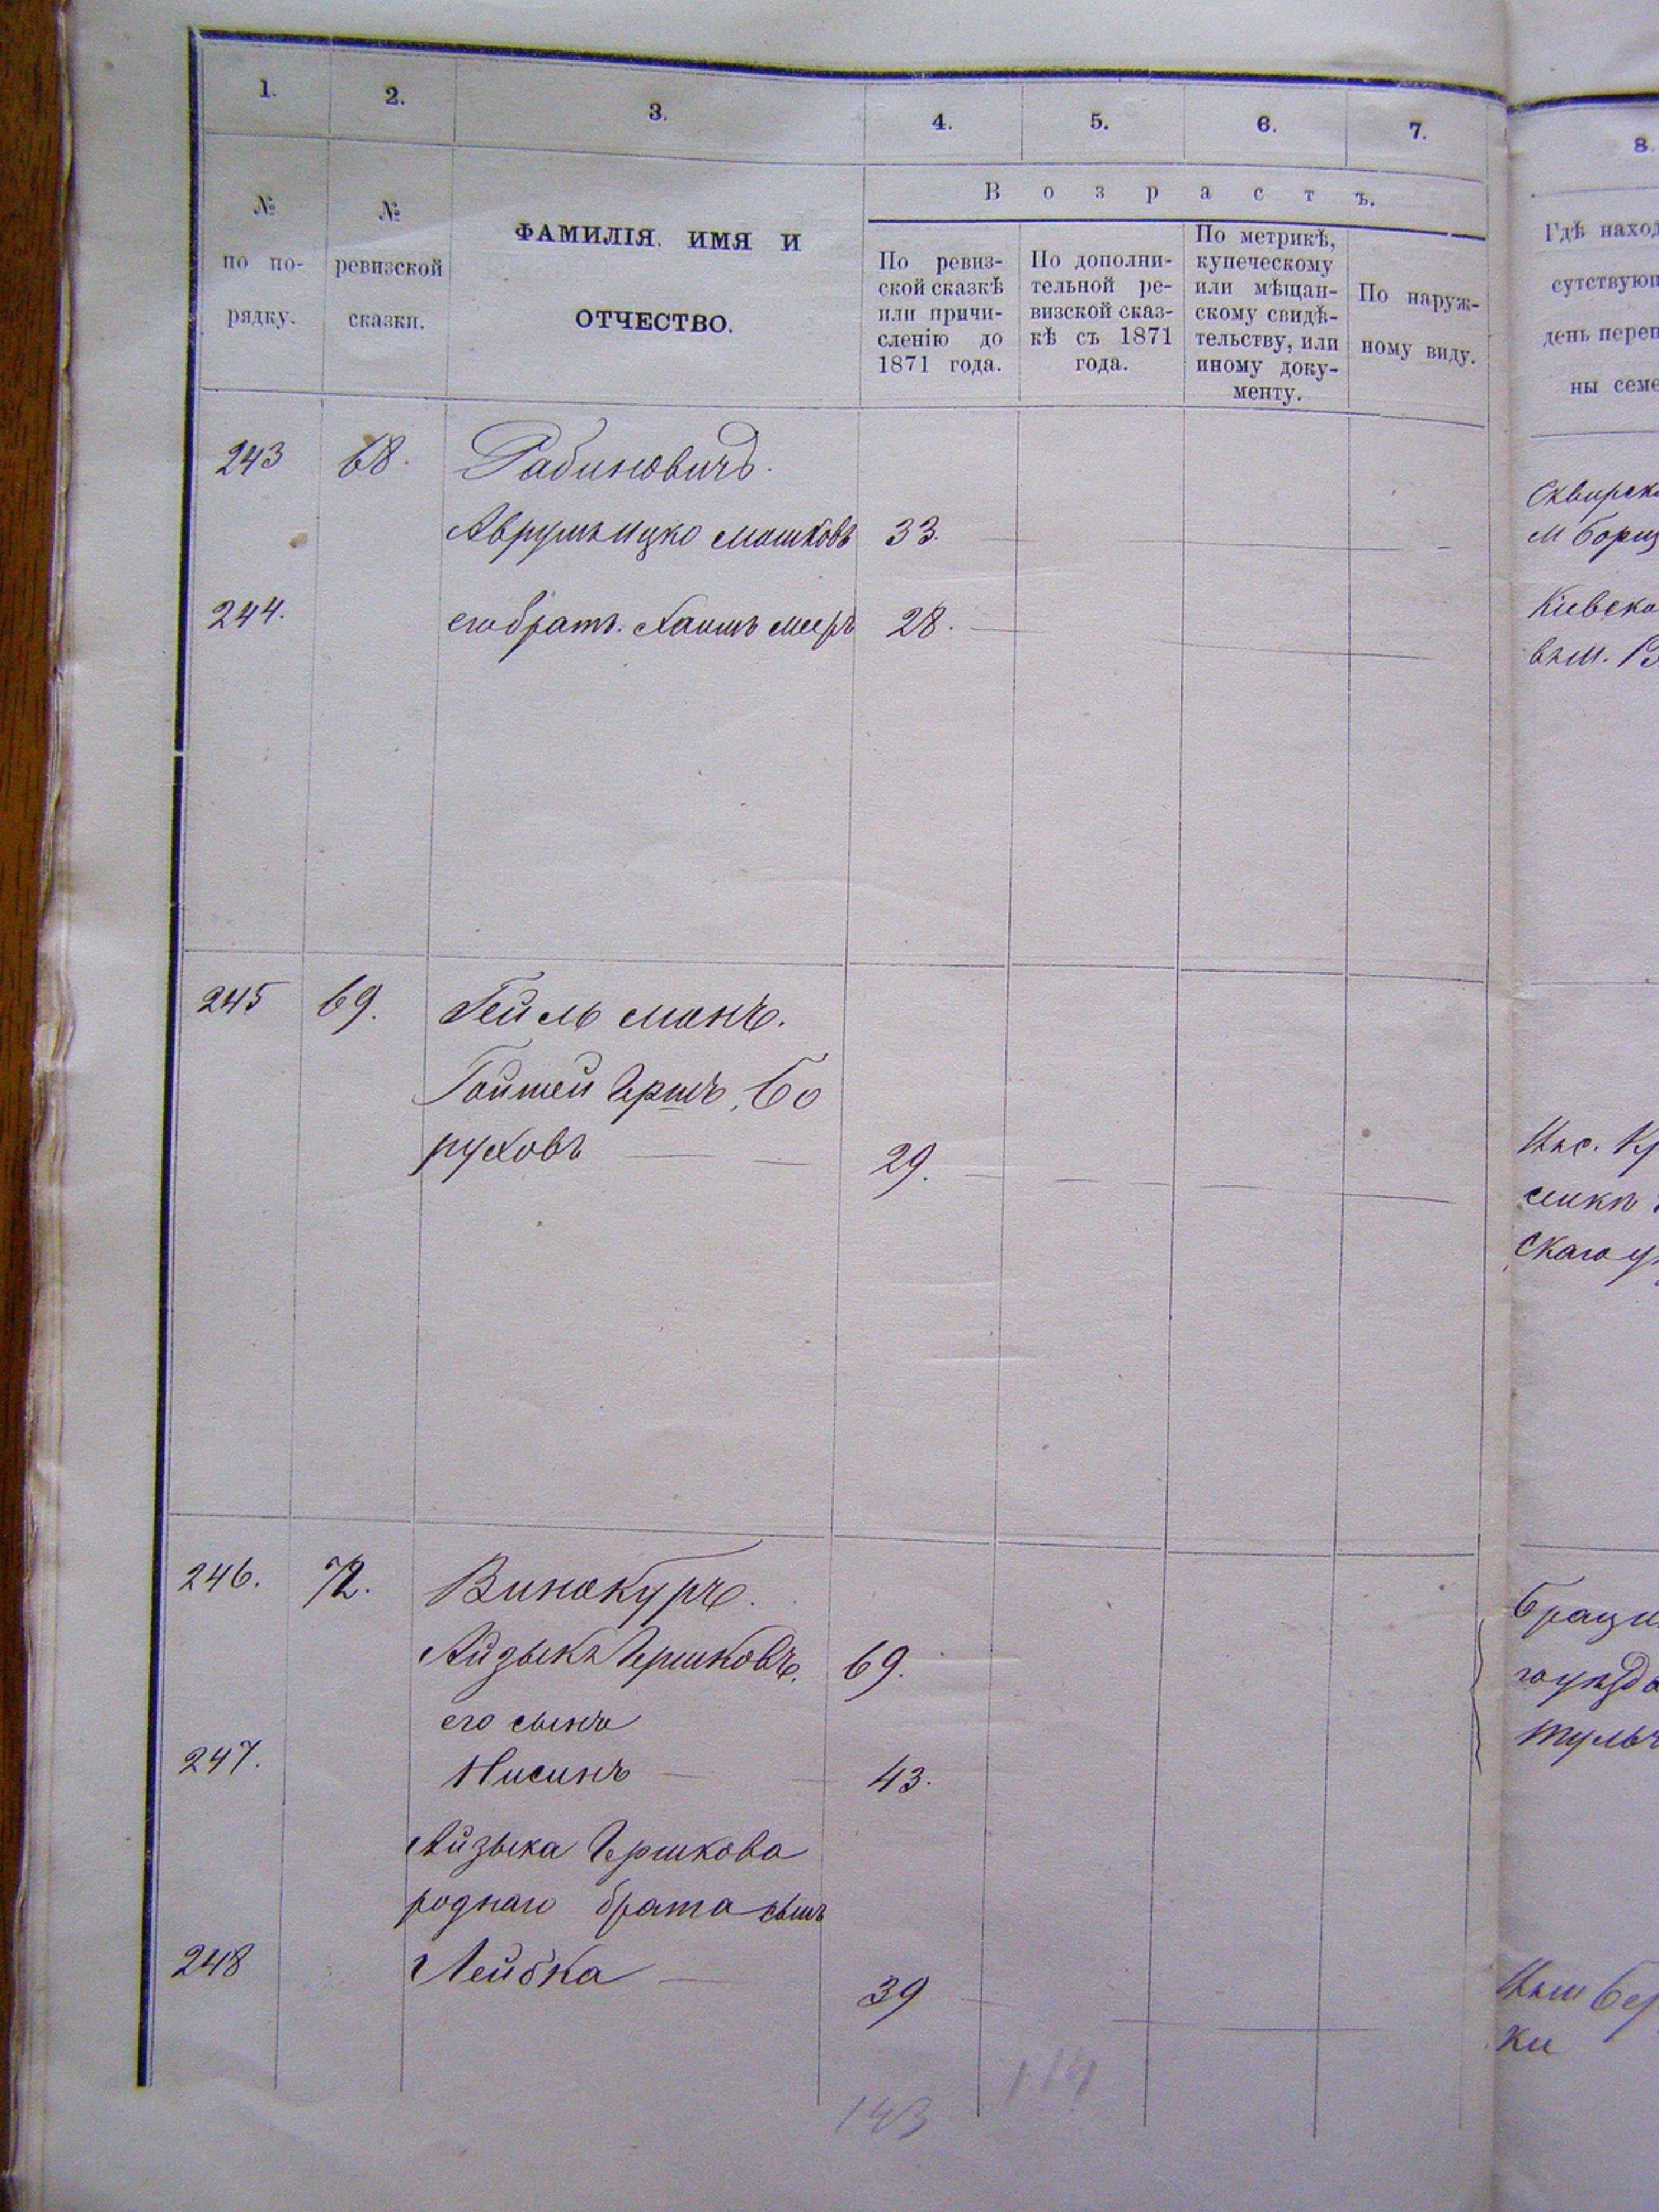 1. 2. 3. 4. 5. 6. 7. 8.
№ по по-рядку.
№ ревизской сказки.
ФАМИЛІЯ. ИМЯ И
ОТЧЕСТВО.
Возрастъ.
По ревиз-
ской сказкѣ
или причи-
сленію до
1871 года.
По дополни-
тельной ре-
визской сказ-
кѣ съ 1871
года.
По метрикѣ,
купеческому
или мѣщан-
скому свидѣ-
тельству, или
иному доку-
менту.
По наруж-
ному виду.
Гдѣ наход
сутствующ
день переп
ны семе
243 68. Рабиновичъ.
Аврумъ Ицко Мошковъ 33.
244. его братъ. Хаимъ Меръ 28.
Сквирск
м Борщ
Кіевско
въ м.
245 69. Гейльманъ.
Гершъ, Бо
руховъ 29.
Скаго у
246. 72. Винокуръ.
Айзыкъ Гершковъ. 69.
его сынъ
247. Нисинъ 43.
Айзыка Гершкова
роднаго брата сынъ
248 Лейбка 39
Брацл
гоуѣзд
Тульч
Бер
ки
143
114